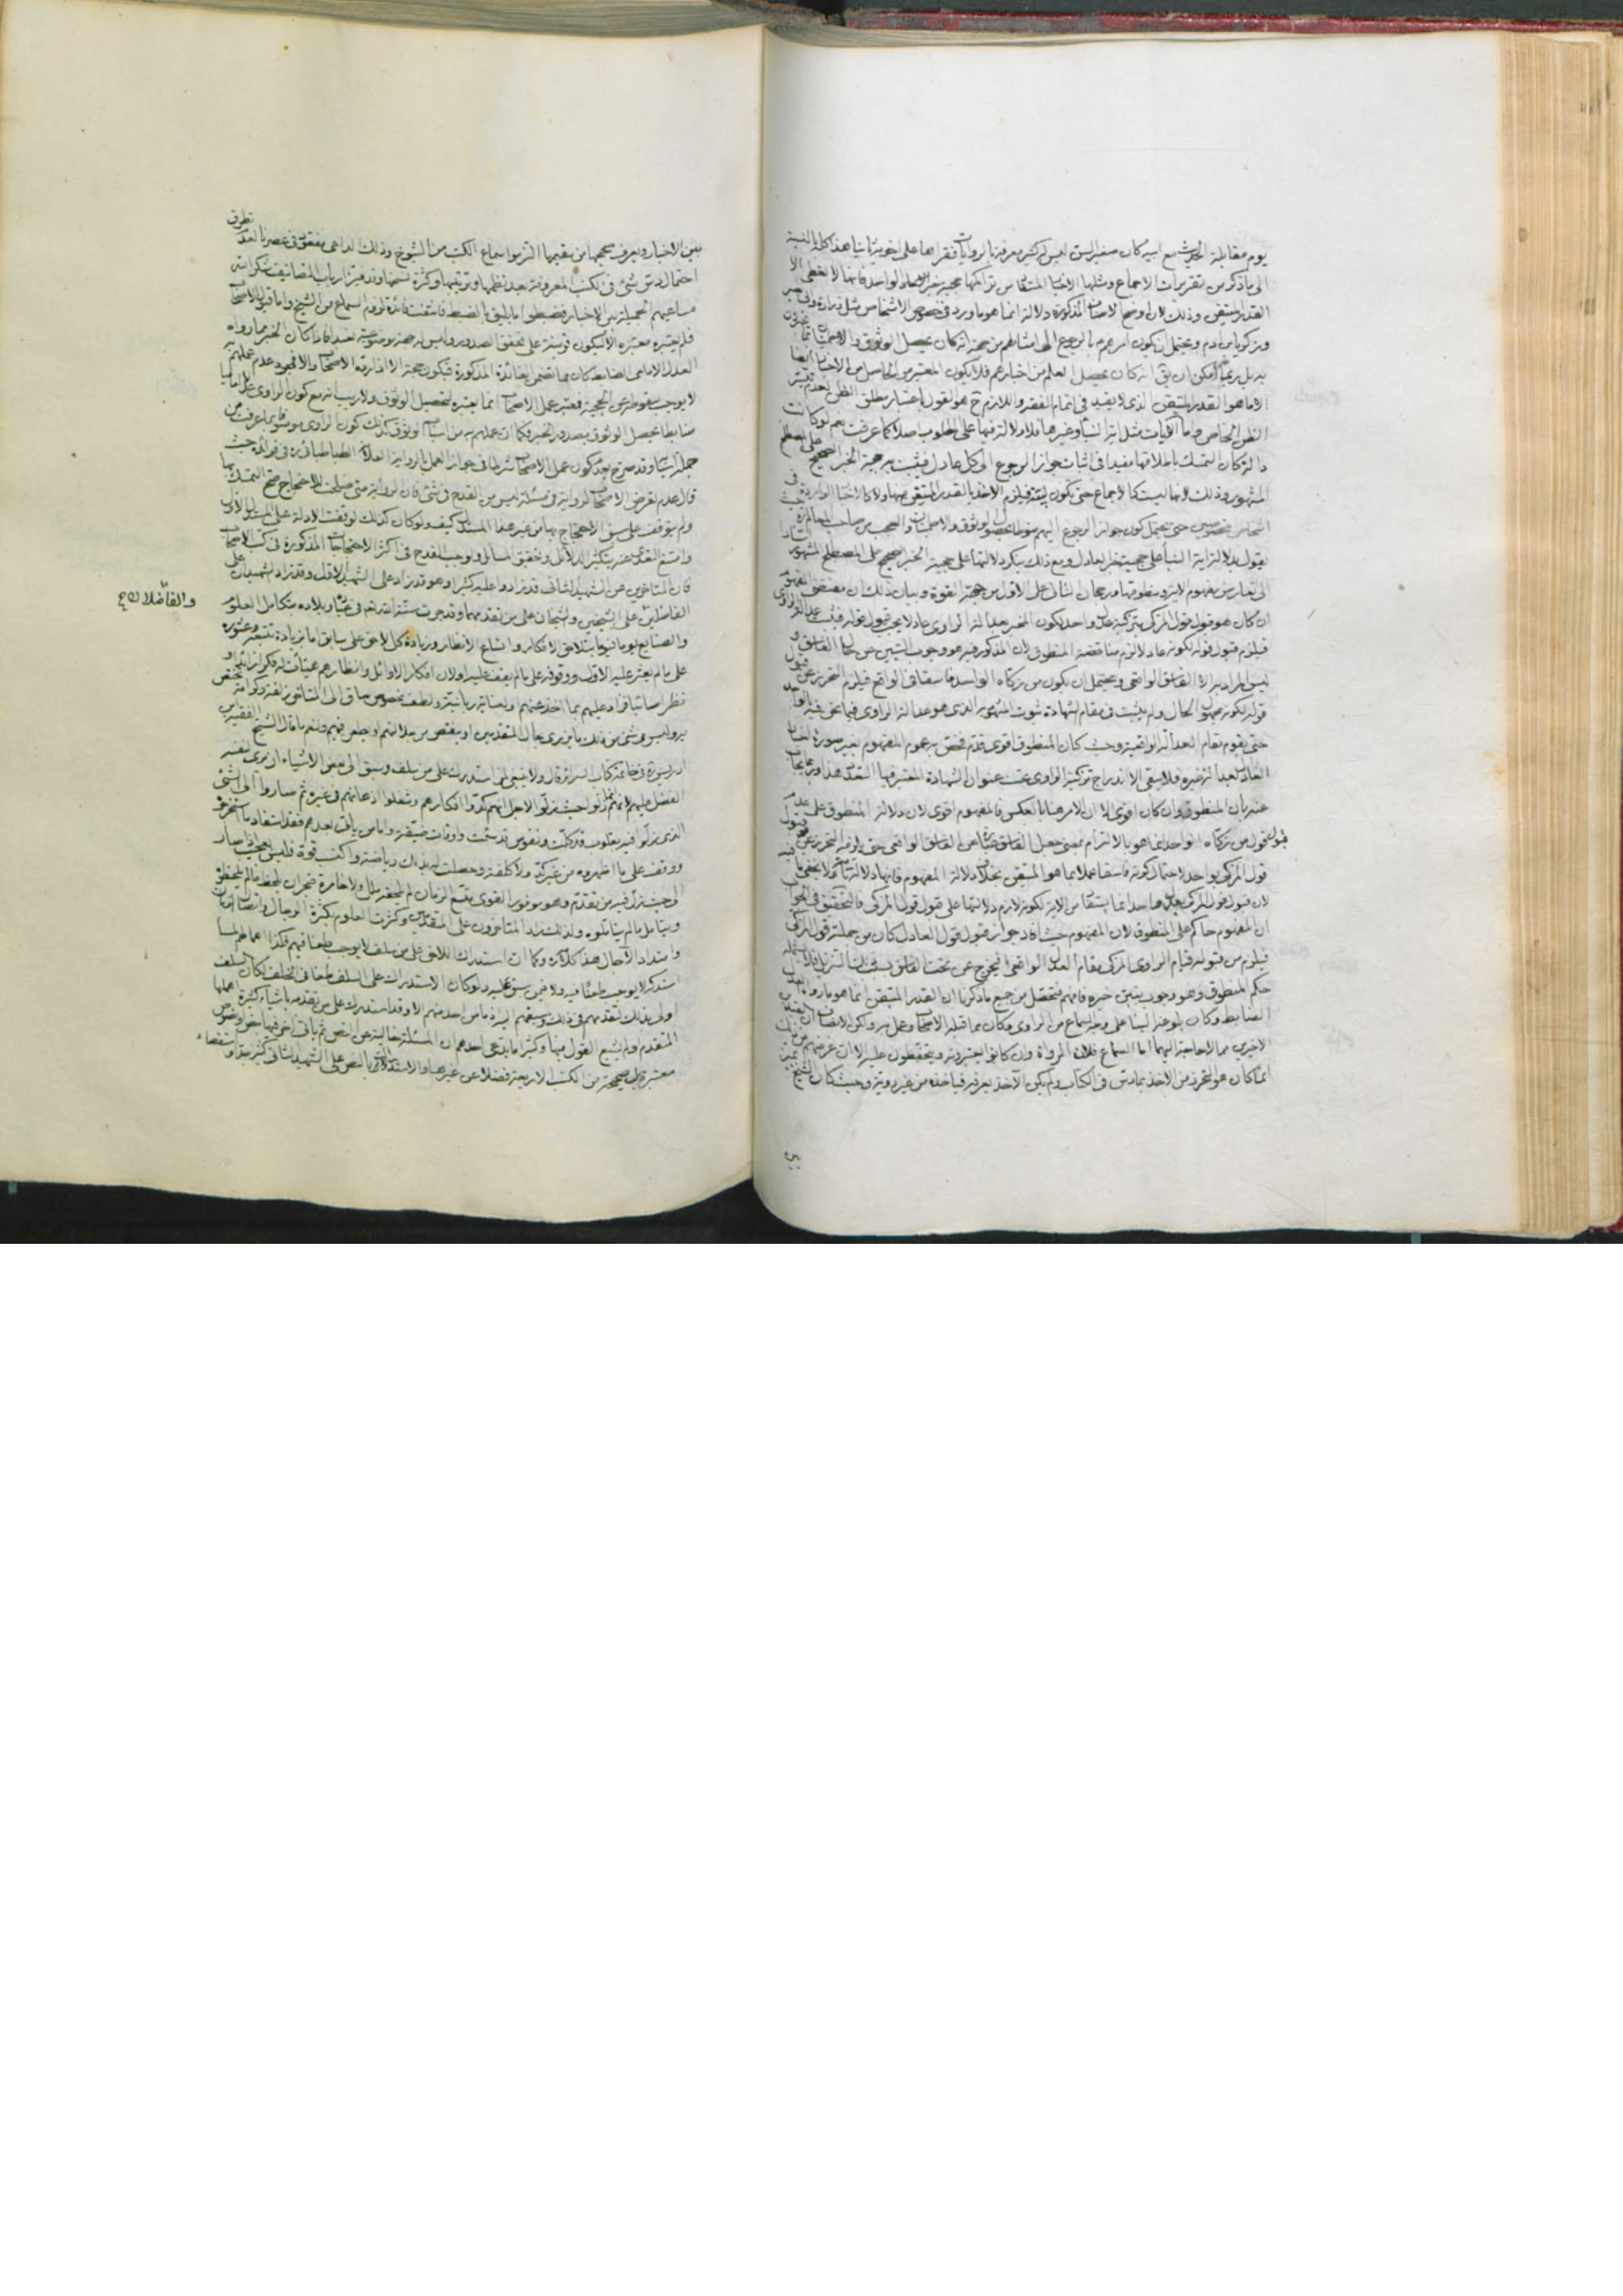 يوم مقابلة الحديث مع ابيه كان صغير السن ليس له كثير معرفة بالروايات فقرأها على اخويه ثانيا هذا كله بالنسبة
الى ما ذكر من تقريرات الاجماع ومثلها الاخبار المستفاد من تراكمها حجية خبر الواحد فانها لا تعطى الا
القدر المتيقن وذلك لان اوضح الاخبار المذكورة دلالة انما هو ما ورد فى خصوص الاشخاص مثل زرارة
وزكريا بن ادم ويحتمل ان يكون امرهم بالرجوع الى امثالهم من جهة انه كان يحصل الوثوق والاطمينان
به بل ربما امكن ان يق انه كان يحصل العلم من اخبارهم فلا يكون المعتبر من الحاصل من الاخبار ايضا
الا ما هو القدر المتيقن الذى لا يفيد فى اتمام الفقه واللازم ح هو القول باعتبار مطلق الظن لعدم تيسر
الظن الخاص واما الآيات مثل اية النبأ وغيرها فلا دلالة فيها على المطلوب اصلا كما عرفت نعم لو كانت
دالة كان التمسك باطلاقها مفيدا فى اثبات جواز الرجوع الى كل عادل فيثبت به حجية الخبر الصحيح على المصطلح
المشهور وذلك لانها ليست كالاجماع حتى يكون لبيّة فيلزم الاخذ بالقدر المتيقن منها ولا كالاخبار الواردة فى
اشخاص مخصوصين حتى يحتمل كون جواز الرجوع اليهم منوطا بحصول الوثوق والاطمينان والعجب من صاحب المعالم ره حيث
يقول بدلالة اية النبأ على حجية خبر العادل ومع ذلك ينكر دلالتها على حجية الخبر الصحيح على المصطلح المشهور
الى تعارض مفهوم الاية ومنطوقها ورجحان الثانى على الاول من جهة القوة وبيان ذلك ان مقتضى المفهوم
ان كان هو قبول قول المزكى بتزكية عدل واحد لكون المخبر بعدالة الراوى عادلا يجب قبول قوله فيثبت عدالة الراوى
فيلزم قبول قوله لكونه عادلا لزم مناقضة المنطوق لان المذكور فيه هو وجوب التبين عن خبر الفاسق و
ليس المراد به الا الفاسق الواقعى ويحتمل ان يكون من زكاه الواحد فاسقا فى الواقع فيلزم التحرز عن قبول
قوله لكونه مجهول الحال ولم يثبت فى مقام الشهادة ثبوت المشهود به الذى هو عدالة الراوى فيما نحن فيه بالواحد
حتى يقوم مقام العدالة الواقعية وحيث كان المنطوق اقوى قدّم فخص به عموم المفهوم بغير صورة اخبار
العادل بعدالة غيره فلا يبقى الا اندراج تزكية الراوى تحت عنوان الشهادة المعتبر فيها التعدد هذا وربما يجاب
عنه بان المنطوق وان كان اقوى الا ان الامر هنا بالعكس فالمفهوم اقوى لان دلالة المنطوق على عدم قبول
قبول قول من زكاه الواحد انما هو بالالتزام بمعنى جعل الفاسق عبارة عن الفاسق الواقعى حتى يلزمه التحرز عن
قول المزكى بواحد لاحتمال كونه فاسقا عملا بما هو المتيقن بخلاف دلالة المفهوم فانها دلالة تامة ولا يخفى ما فيه
لان قبول قول المزكى بعدل واحد انما يستفاد من الاية لكونه لازم دلالتها على قبول قول المزكى فالتحقيق فى الجواب
ان المفهوم حاكم على المنطوق لان المفهوم حيث افاد جواز قبول قول العادل كان من جملته قول المزكى
فيلزم من قبوله قيام الراوى المزكى مقام العدل الواقعى فيخرج عن تحت الفاسق بسبب ذلك التنزيل فلا يشمله
حكم المنطوق وهو وجوب تبين خبره فافهم فتحصل من جميع ما ذكرنا ان القدر المتيقن انما هو ما رواه العدل
الضابط وكان بلوغه الينا على وجه السماع من الراوى وكان مما قبله الاصحاب وعمل به ولكن الانصاف ان القيدين
الاخيرين مما لا حاجة اليهما اما السماع فلان الرواة وان كانوا يعتبرونه ويتحفظون عليه الا ان غرضهم من ذلك
انما كان هو التحرز من الاخذ بما دسّ فى الكتاب ولم يكن الآخذ يعرفه فيأخذه من غير رويّة وحيث كان الشيخ يميز
بين
بين الاخبار ويعرف صحيحها من سقيمها التزموا سماع الكتب من الشيوخ وذلك الداعى مفقود فى عصرنا لعدم تطرق
احتمال دسّ شئ فى الكتب المعروفة بعد نظمها وترتيبها وكثرة نسخها وقد ميز ارباب التصانيف شكر الله
مساعيهم الجميلة بين الاخبار فضبطوا ما يليق بالضبط فانتفت فائدة لزوم السماع من الشيخ واما قبول الاصحاب
فلم يعتبره معتبره الا ليكون قرينة على تحقق الصدور وليس له جهة موضوعية تعبد فاذا كان الخبر مما رواه
العدل الامامى الضابط كان مما تضمن لفائدة المذكورة فيكون حجة الا اذا رده الاصحاب والا فمجرد عدم عملهم به
لا يوجب سقوطه عن الحجية فمعتبر عمل الاصحاب انما يعتبره لتحصيل الوثوق ولا ريب انه مع كون الراوى عدلا اماميا
ضابطا يحصل الوثوق بصدور الخبر فكما ان عملهم به من اسباب الوثوق كذلك كون الراوى موثوقا به
جملة اسبابه وقد صرح بعدم كون عمل الاصحاب شرطا فى جواز العمل بالرواية العلامة الطباطبائى ره فى فوائده حيث
قال عدم تعرض الاصحاب لرواية فى مسئلة ليس من القدح فى شئ فان الرواية متى صلحت للاحتجاج صح التمسك بها
ولم يتوقف على سبق الاحتجاج بها من غير هذا المستدل كيف ولو كان كذلك لوقفت الادلة على المستدل الاول
وامتنع التعدى عنه بتكثير الدلائل وتحقيق المسائل ولوجب القدح فى اكثر الاحتجاجات المذكورة فى كتب الاصحاب
فان المتاخرين عن الشهيد الثانى قد زادوا عليه كثيرا وهو قد زاد على الشهيد الاول وقد زاد الشهيدان على
الفاضلين على الشيخين والشيخان على من تقدمهما وقد جرت سنة الله تعالى فى عباده وبلاده بتكامل العلوم
والفاضلان ع
والصنايع يوما فيوما بتلاحق الافكار واتساع الانظار وزيادة كل لاحق على سابق ما بزيادة تتبعه وعثوره
على ما لم يعثر عليه الاول ووقوفه على ما لم يقف عليه او لان افكار الاوائل وانظارهم هيأت له فكرا زائدا و
نظرا صائبا فزاد عليهم بما اخذ عنهم او لعناية ربانية ولطف مخصوص ساق الى السابق
به وليس فى شئ من ذلك ما يزرى بحال المتقدمين او ينقص من جلالتهم او يطعن فيهم ولنعم ما قال الشيخ الفقيه ابن
ادريس ره فى خاتمة كتاب السرائر قال ولا ينبغى لمن استدرك على من سلف وسبق الى بعض الاشياء ان يرى لنفسه
الفضل عليهم لانهم انما زلوا حيث زلوا لاجل انهم كدّوا افكارهم وشغلوا اذهانهم فى غيره ثم صاروا الى الشئ
الذى زلّوا فيه بقلوب قد كلّت ونفوس قد سئمت واوقات ضيقة واما من ياتى بعدهم فقد استفاد منهم ما استخرجوه
ووقف على ما اظهروه من غير كدّ ولا كلفة وحصلت له بذلك رياضة واكتسب قوة فليس بعجيب اذا صار
الى حيث زلّ فيه من تقدّم وهو موفور القوى متسع الزمان لم يلحقه ملل ولا خامره ضجر ان يلحظ ما لم يلحظوه
ويتامل ما لم يتاملوه ولذلك زاد المتاخرون على المتقدمين وكثرت العلوم بكثرة الرجال واتصال الزمان
وامتداد الآجال هذا كلامه وكما ان استدراك اللاحق على من سلف لا يوجب طعنا فيهم فكذا اهمالهم لما
استدركه لا يوجب طعنا فيه ولا فيمن سبق عليه ولو كان الاستدراك على السلف طعنا فى الخلف لكان السلف
اولى بذلك لتقدمهم فى ذلك وسبقهم اليه فما من احد منهم الا وقد استدرك على من تقدمه باشياء كثيرة اهملها
المتقدم ولم يشبع القول فيها وكثيرا ما يدعى احدهم ان المسئلة خالية عن النص ثم ياتى اخر فيها بنص او نصوص
معتبرة بل صحيحة من الكتب الاربعة فضلا عن غيرها والاستدراك بالنص على الشهيد الثانى كثير جدا واستقصاء